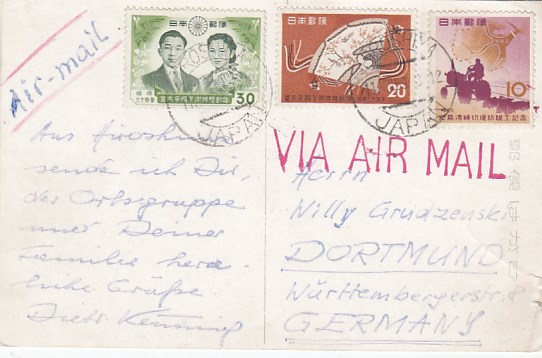 Air-mail
日本郵便
30
日本郵便
20
日本郵便
10
JAPAN
JAPAN
VIA AIR MAIL
Aus Hiroshima
sende ich Dir,
der Ortsgruppe
und Deiner
Familie herz-
liche Grüße
Herrn
Willy Grudzenski
DORTMUND
Württembergerstr.
GERMANY